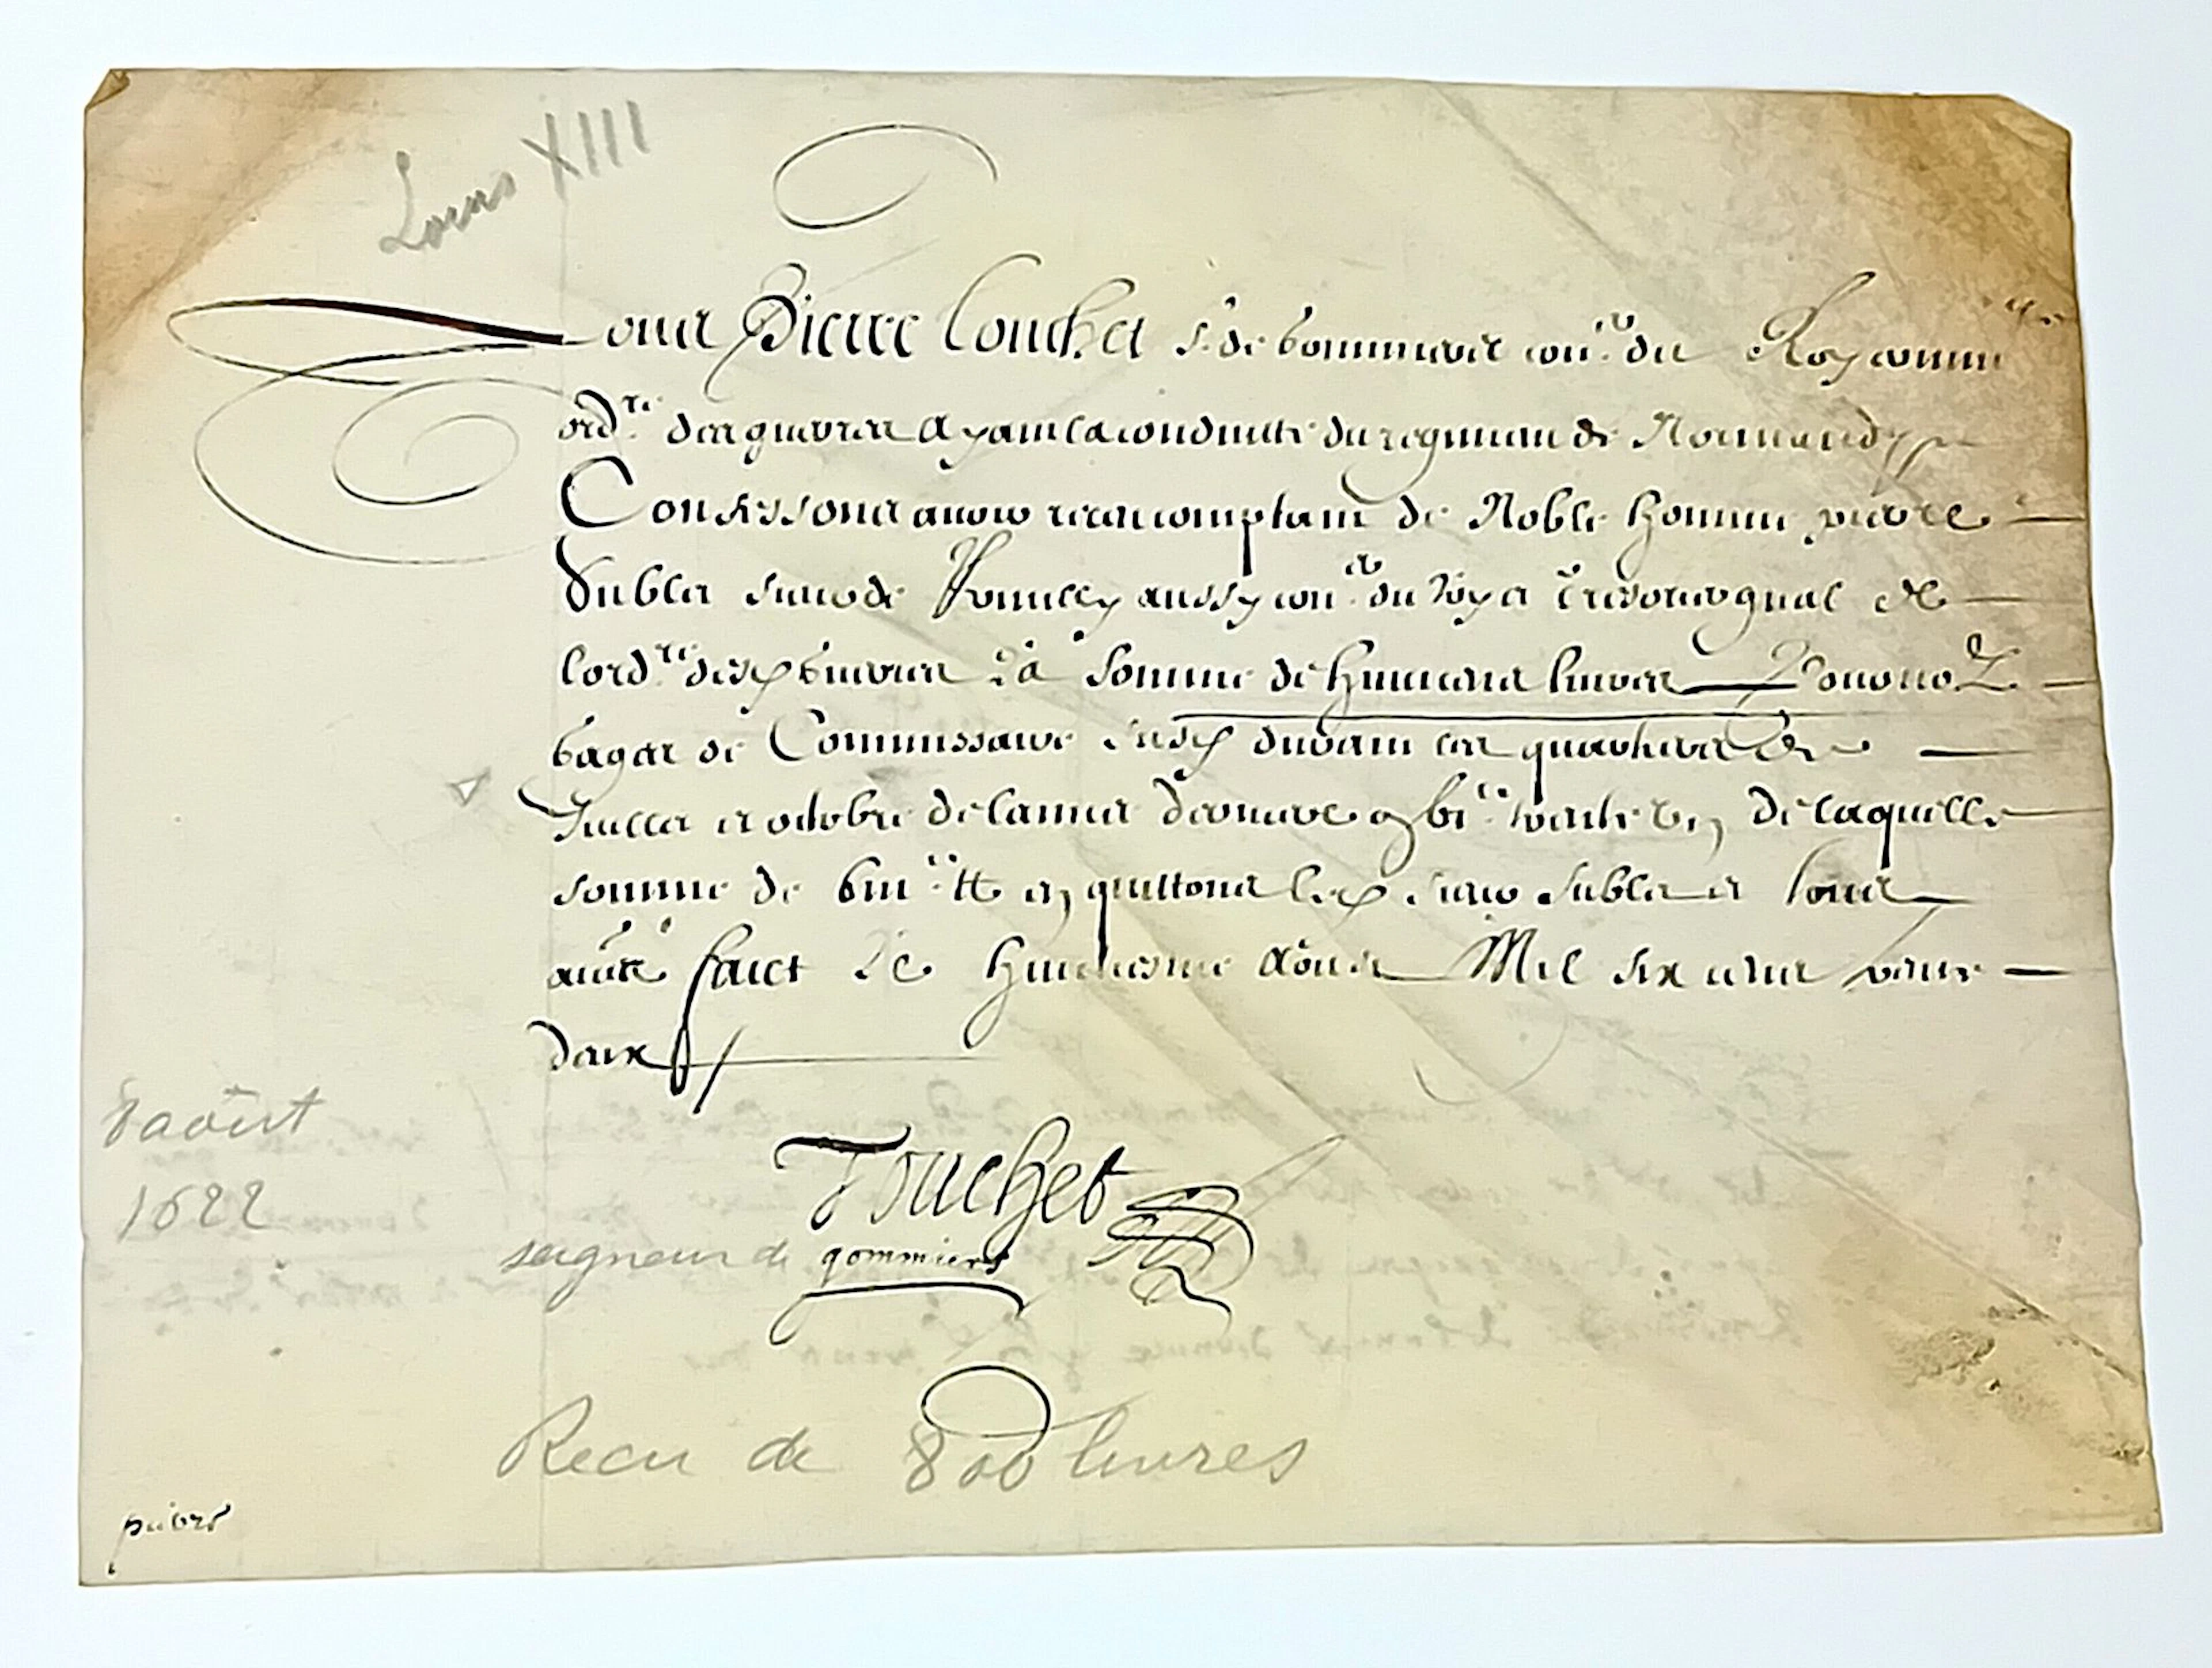 Louis XIII
Nous Pierre Touchet Sr de Gommiers coner du Roy comm re
ordre des guerres ayant la conduitte du regiment de Normandye
Confessons avoir receu comptant de Noble homme pierre
Sublet sieur de Romilly aussy coner du Roy et tresorier gnal de
lordre desd guerres La Somme de huict cens livres A Nous ordo
gages de Commissaire susd durant les quartiers de
Juillet et octobre de lannee derniere gbic vingt un De laquelle
somme de viiic tt en quittons led sieur Sublet et tous
autres faict Le huictiesme Aoust Mil six cens vingt
deux
8 août
1622
Touchet
seigneur de gommiers
Recu de 800 livres